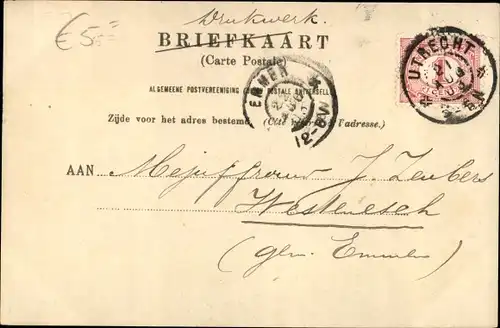 €5=
Drukwerk.
BRIEFKAART
(Carte Postale)
ALGEMEENE POSTVEREENIGING (UNION POSTALE UNIVERSELLE)
Zijde voor het adres bestemd. (Côté réservé à l'adresse.)
UTRECHT
EMMEN
12-8VM
AAN Mejuffrouw J. Zembers
Westenesch
(gem. Emmen)